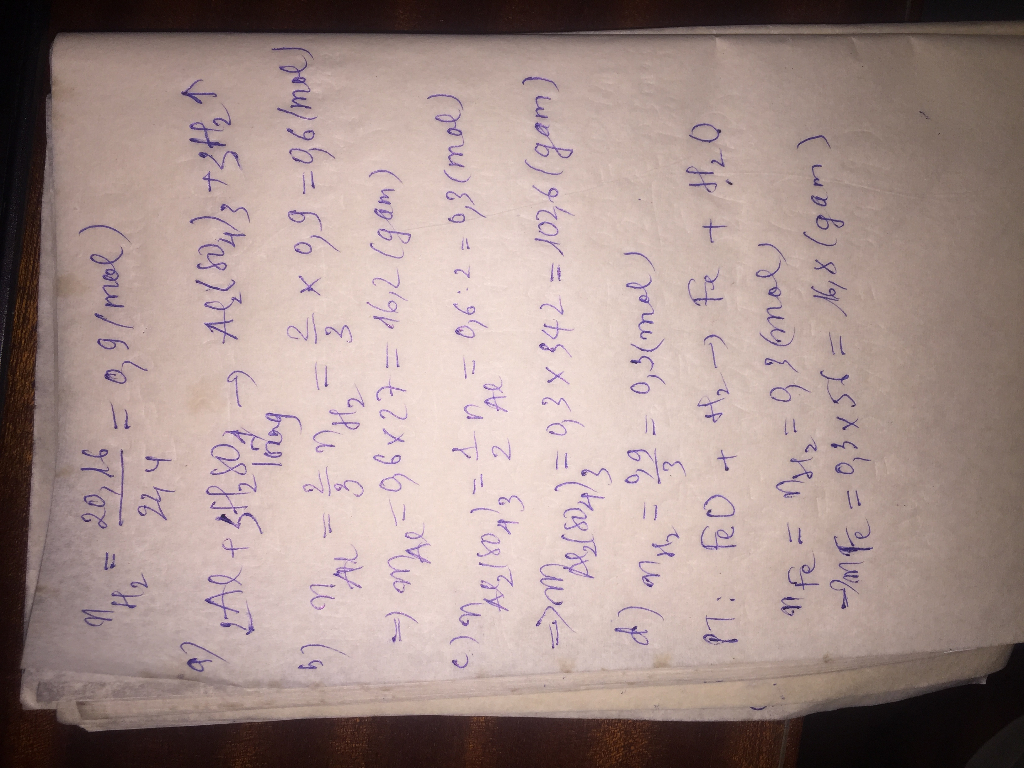 n_H₂ = 20,16/22,4 = 0,9 (mol)
a) 2Al + 3H₂SO₄ loãng → Al₂(SO₄)₃ + 3H₂↑
b) n_Al = 2/3 n_H₂ = 2/3 × 0,9 = 0,6 (mol)
=) m_Al = 0,6 × 27 = 16,2 (gam)
c) n_Al₂(SO₄)₃ = 1/2 n_Al = 0,6 : 2 = 0,3 (mol)
=> m_Al₂(SO₄)₃ = 0,3 × 342 = 102,6 (gam)
d) n_H₂ = 0,9/3 = 0,3 (mol)
PT: FeO + H₂ → Fe + H₂O
n_Fe = n_H₂ = 0,3 (mol)
=> m_Fe = 0,3 × 56 = 16,8 (gam)